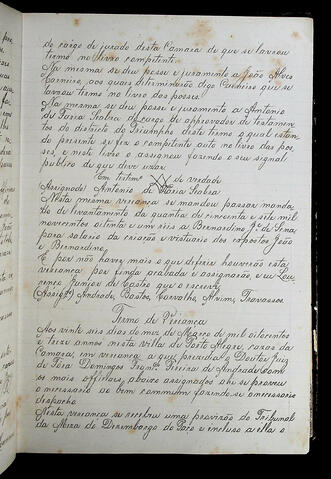 do cargo de jurado desta Camara de que se lavrou
termo no livro competente.
Na mesma se deu posse e juramento a João Alves
Carneiro, aos quaes determinarão digo Carneiro que se
lavrou termo no livro das posses.
Na mesma se deu posse e juramento a Antonio
de Faria Seabra do cargo de approvador de testamen
tos do districto do Triumpho deste termo a qual estan
do presente se fez o competente auto no livro das pos
ses, e neste livro o assignou fazendo o seu signal
publico de que deve usar
Em testemº de verdade
Assignado: Antonio de Faria Seabra
Nesta mesma vereança se mandou passar manda
do de levantamento da quantia de cincoenta e sete mil
novecentos oitenta e um réis a Bernardino Jº de Sena
para salario da criação e vistuario dos expostos João
e Bernardino.
E por não haver mais o que diferir houverão esta
vereança por finda acabada e assignarão, e eu Lou
renço Junior de Castro que o escrevi
(Assigº) Andrade, Bastos, Carvalho, Alvim, Travassos.
Termo de Vereança
Aos vinte seis dias do mez de Março de mil oitocentos
e treze annos nesta villa de Porto Alegre, casas da
Camara, em vereança a que presidio o Doutor Juiz
de Fora Domingos Pereira de Andrade com
os mais officiaes abaixo assignados ahi se proveu
o necessario ao bem commum fazendo-se o necessario
despacho
Nesta vereança se recebeu uma provisão do Tribunal
da Meza do Desembargo do Paço e incluso a ella o